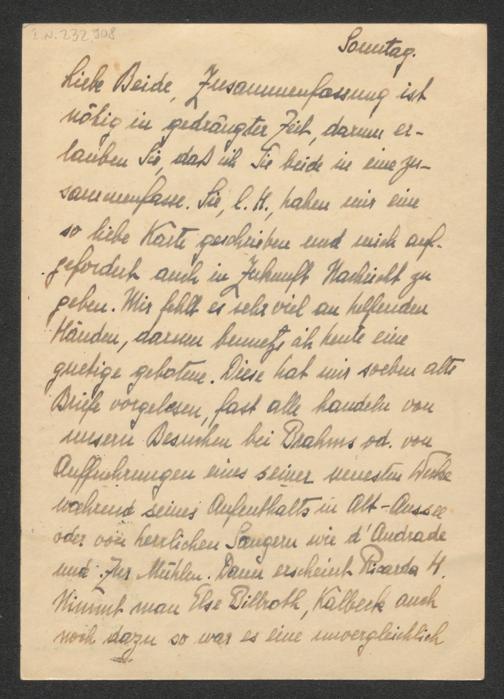 I.N. 232.708
Sonntag.
Liebe Beide, Zusammenfassung ist
nötig in gedrängter Zeit, darum er-
lauben Sie, daß ich Sie beide in eine zu-
sammenfasse. Sie, l. H., haben mir eine
so liebe Karte geschrieben und mich auf-
gefordert auch in Zukunft Nachricht zu
geben. Mir fehlt es sehr viel an helfenden
Händen, darum benuetze ich heute eine
guetige gebotene. Diese hat mir soeben alte
Briefe vorgelesen, fast alle handeln von
unsern Besuchen bei Brahms od. von
Auffuehrungen eines seiner neuesten Werke
waehrend seines Aufenthalts in Alt-Aussee
oder von herrlichen Sangern wie d'Andrade
und Zur Mühlen. Dann erscheint Ricarda H.
Nimmt man Else Billroth, Kalbeck auch
noch dazu so war es eine unvergleichlich